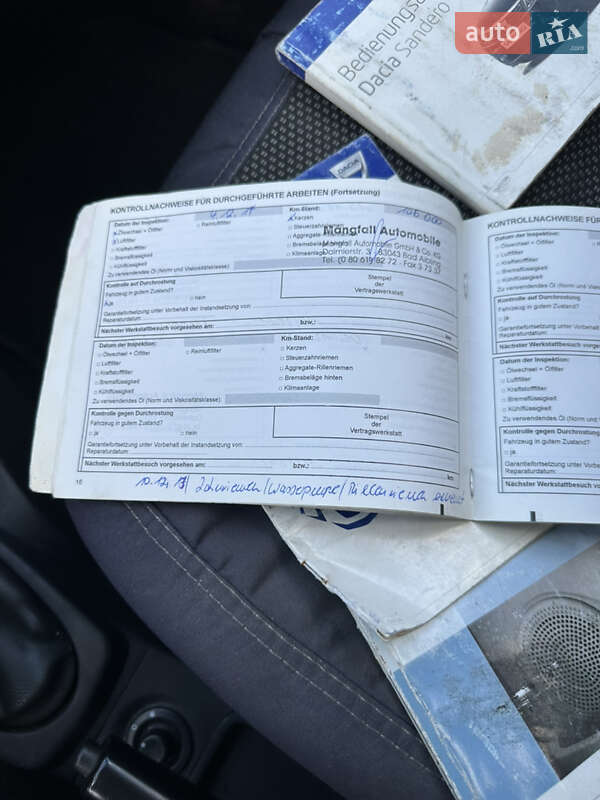 auto RIA.com
Bedienungsa
Dacia Sandero
DACIA
KONTROLLNACHWEISE FÜR DURCHGEFÜHRTE ARBEITEN (Fortsetzung)
Datum der Inspektion: 4.12.17 Km-Stand: 106 000
Ölwechsel + Ölfilter □ Reinluftfilter Kerzen
Luftfilter □ Steuerzahnriemen
□ Kraftstofffilter □ Aggregate-
□ Bremsflüssigkeit □ Bremsbeläge
□ Kühlflüssigkeit □ Klimaanlage
Zu verwendendes Öl (Norm und Viskositätsklasse):
Mangfall Automobile
Mangfall Automobile GmbH & Co. KG
Daimlerstr. 3, 83043 Bad Aibling
Tel. (0 80 61) 9 82 72 - Fax 3 73 37
Kontrolle auf Durchrostung
Fahrzeug in gutem Zustand?
ja □ nein
Stempel
der
Vertragswerkstatt
Garantiefortsetzung unter Vorbehalt der Instandsetzung von:
Reparaturdatum:
Nächster Werkstattbesuch vorgesehen am: bzw.: km
Datum der Inspektion: Km-Stand:
□ Ölwechsel + Ölfilter □ Reinluftfilter □ Kerzen
□ Luftfilter □ Steuerzahnriemen
□ Kraftstofffilter □ Aggregate-Rillenriemen
□ Bremsflüssigkeit □ Bremsbeläge hinten
□ Kühlflüssigkeit □ Klimaanlage
Zu verwendendes Öl (Norm und Viskositätsklasse):
Kontrolle gegen Durchrostung
Fahrzeug in gutem Zustand?
□ ja □ nein
Stempel
der
Vertragswerkstatt
Garantiefortsetzung unter Vorbehalt der Instandsetzung von:
Reparaturdatum:
Nächster Werkstattbesuch vorgesehen am: bzw.: km
16
Zahnriemen/Wasserpumpe/Rillenriemen erneuert
KONTROLLNACHWEISE FÜR
Datum der Inspektion:
□ Ölwechsel + Ölfilter
□ Luftfilter
□ Kraftstofffilter
□ Bremsflüssigkeit
□ Kühlflüssigkeit
Zu verwendendes Öl (Norm und V
Kontrolle auf Durchrostung
Fahrzeug in gutem Zustand?
□ ja
Garantiefortsetzung unter Vorbeh
Reparaturdatum:
Nächster Werkstattbesuch vorg
Datum der Inspektion:
□ Ölwechsel + Ölfilter
□ Luftfilter
□ Kraftstofffilter
□ Bremsflüssigkeit
□ Kühlflüssigkeit
Zu verwendendes Öl (Norm und V
Kontrolle gegen Durchrostung
Fahrzeug in gutem Zustand?
□ ja
Garantiefortsetzung unter Vorbeh
Reparaturdatum:
Nächster Werkstattbesuch vorg